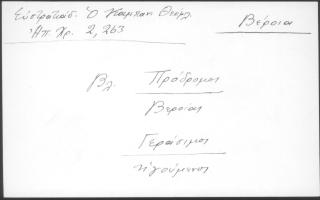 Εὐστρατιάδ. Ὁ Κάμπαν Θεόφ.
Ἁπ. Χρ. 2, 263
Βέροια
Βλ. Πρόδρομος
Βεροίας
Γεράσιμος
ἡγούμενος